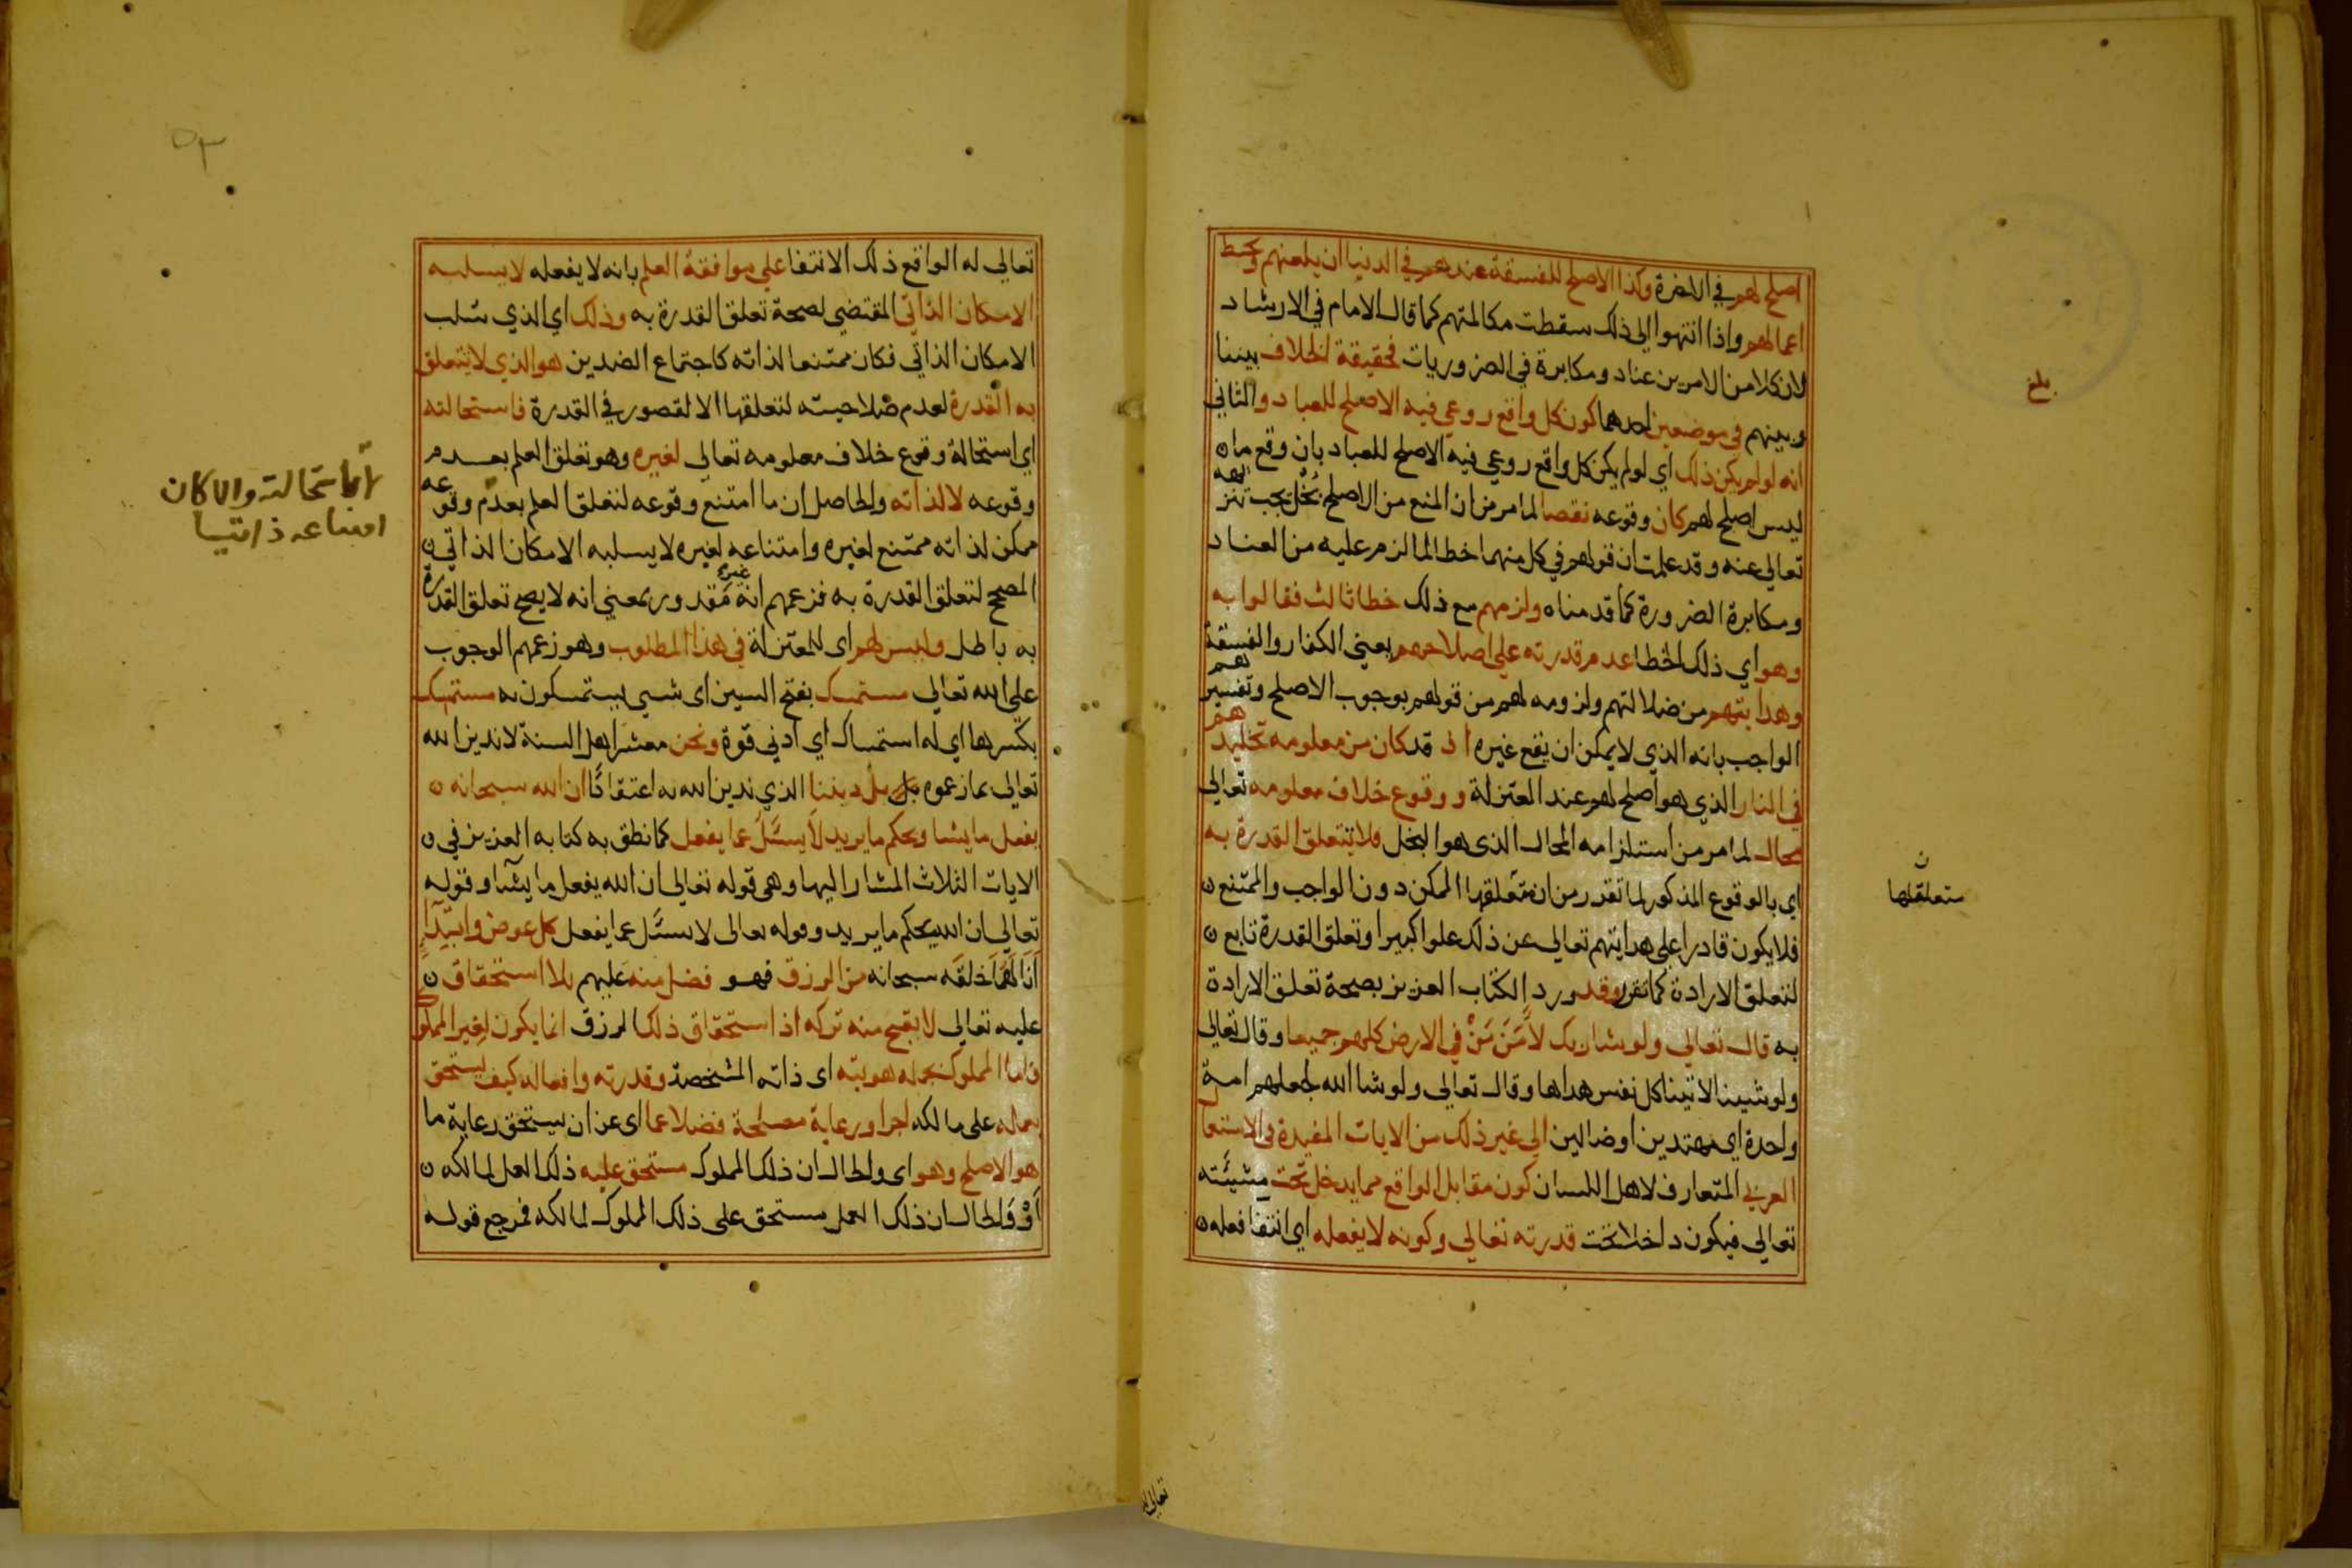 اصلح لهم في الاخرة وكذا الاصلح للفسقة عندهم في الدنيا ان يلعنهم ويحبط
اعمالهم واذا انتهوا الى ذلك سقطت مكالمتهم كما قال الامام في الارشاد
لان كلا من الامرين عناد ومكابرة في الضروريات فحقيقة الخلاف بيننا
وبينهم في موضعين احدهما كون كل واقع روعي فيه الاصلح للعباد والثاني
انه لو لم يكن ذلك اي لو لم يكن كل واقع روعي فيه الاصلح للعباد بان وقع ما
ليس اصلح لهم كان وقوعه نقصا لما مر من ان المنع من الاصلح بُخل يجب تنزيهه
تعالي عنه وقد علمت ان قولهم في كل منهما خطا لما لزم عليه من العناد
ومكابرة الضرورة كما قدمناه ولزمهم مع ذلك خطا ثالث فقالوا به
وهو اي ذلك الخطا عدم قدرته علي اصلاحهم يعني الكفار والفسقة
وهدايتهم من ضلالتهم ولزومه لهم من قولهم بوجوب الاصلح وتفسيرهم
الواجب بانه الذي لا يمكن ان يقع غيره اذ قد كان من معلومه تخليدهم
في النار الذي هو اصلح لهم عند المعتزلة ووقوع خلاف معلومه تعالي
محال لما مر من استلزامه المحال الذي هو البخل فلا تتعلق القدرة به
اي بالوقوع المذكور لما تقرر من ان متعلقها الممكن دون الواجب والممتنع
فلا يكون قادرا علي هدايتهم تعالي عن ذلك علوا كبيرا وتعلق القدرة تابع
لتعلق الارادة كما تقرر وقد ورد الكتاب العزيز بصحة تعلق الارادة
به قال تعالي ولو شا ربك لآمَنَ مَنْ في الارض كلهم جميعا وقال تعالي
ولو شينا لاتينا كل نفس هداها وقال تعالي ولو شا الله لجعلهم امة
واحدة اي مهتدين او ضالين الي غير ذلك من الايات المفيدة في الاستعما
العربي المتعارف لاهل اللسان كون مقابل الواقع مما يدخل تحت مشيئته
تعالي فيكون داخلا تحت قدرته تعالي وكونه لا يفعله اي انتفا فعله
بلغ
متعلقلها
تعالي له الواقع ذلك الانتفا علي موافقة العلم بانه لا يفعله لا يسلبه
الامكان الذاتي المقتضي لصحة تعلق القدرة به وذلك اي الذي سُلب
الامكان الذاتي فكان ممتنعا لذاته كاجتماع الضدين هو الذي لا تتعلق
به القدرة لعدم صلاحيته لتعلقها الا لقصور في القدرة فاستحالته
اي استحالة وقوع خلاف معلومه تعالي لغيره وهو تعلق العلم بعدم
وقوعه لا لذاته والحاصل ان ما امتنع وقوعه لتعلق العلم بعدم وقوعه
ممكن لذاته ممتنع لغيره وامتناعه لغيره لا يسلبه الامكان الذاتي
المصحح لتعلق القدرة به فزعمهم انه غير مقدور بمعني انه لا يصح تعلق القدرة
به باطل وليس لهم اي للمعتزلة في هذا المطلوب وهو زعمهم الوجوب
علي الله تعالي مستمسك بفتح السين اي شي يستمسكون به مستمسك
بكسرها اي له استمساك اي ادني قوة ونحن معشر اهل السنة لا ندين الله
تعالي بما زعموه بل بل ديننا الذي ندين الله به اعتقادًا ان الله سبحانه
يفعل ما يشا ويحكم ما يريد لا يسئل عما يفعل كما نطق به كتابه العزيز في
الايات الثلاث المشار اليها وهي قوله تعالي ان الله يفعل ما يشا وقوله
تعالي ان الله يحكم ما يريد وقوله تعالي لا يسئل عما يفعل كل عوض وابتدآ
انالَهُمَا خلقَه سبحانه من الرزق فهو فضل منه عليهم بلا استحقاق
عليه تعالي لا يقبح منه تركه اذ استحقاق ذلك الرزق انما يكون لغير المملو
فاما المملوك بجملة هويته اي ذاته المشخصة وقدرته وافعاله كيف يستحق
بعمله علي مالكه اجرا ورعاية مصلحة فضلا عما اي عن ان يستحق رعاية ما
هو الاصلح وهو اي والحال ان ذلك المملوك مستحق عليه ذلك العمل لمالكه
أوْ والحال ان ذلك العمل مستحق علي ذلك المملوك لمالكه فمرجع قوله
امتناعه ذاتيا
٥٣